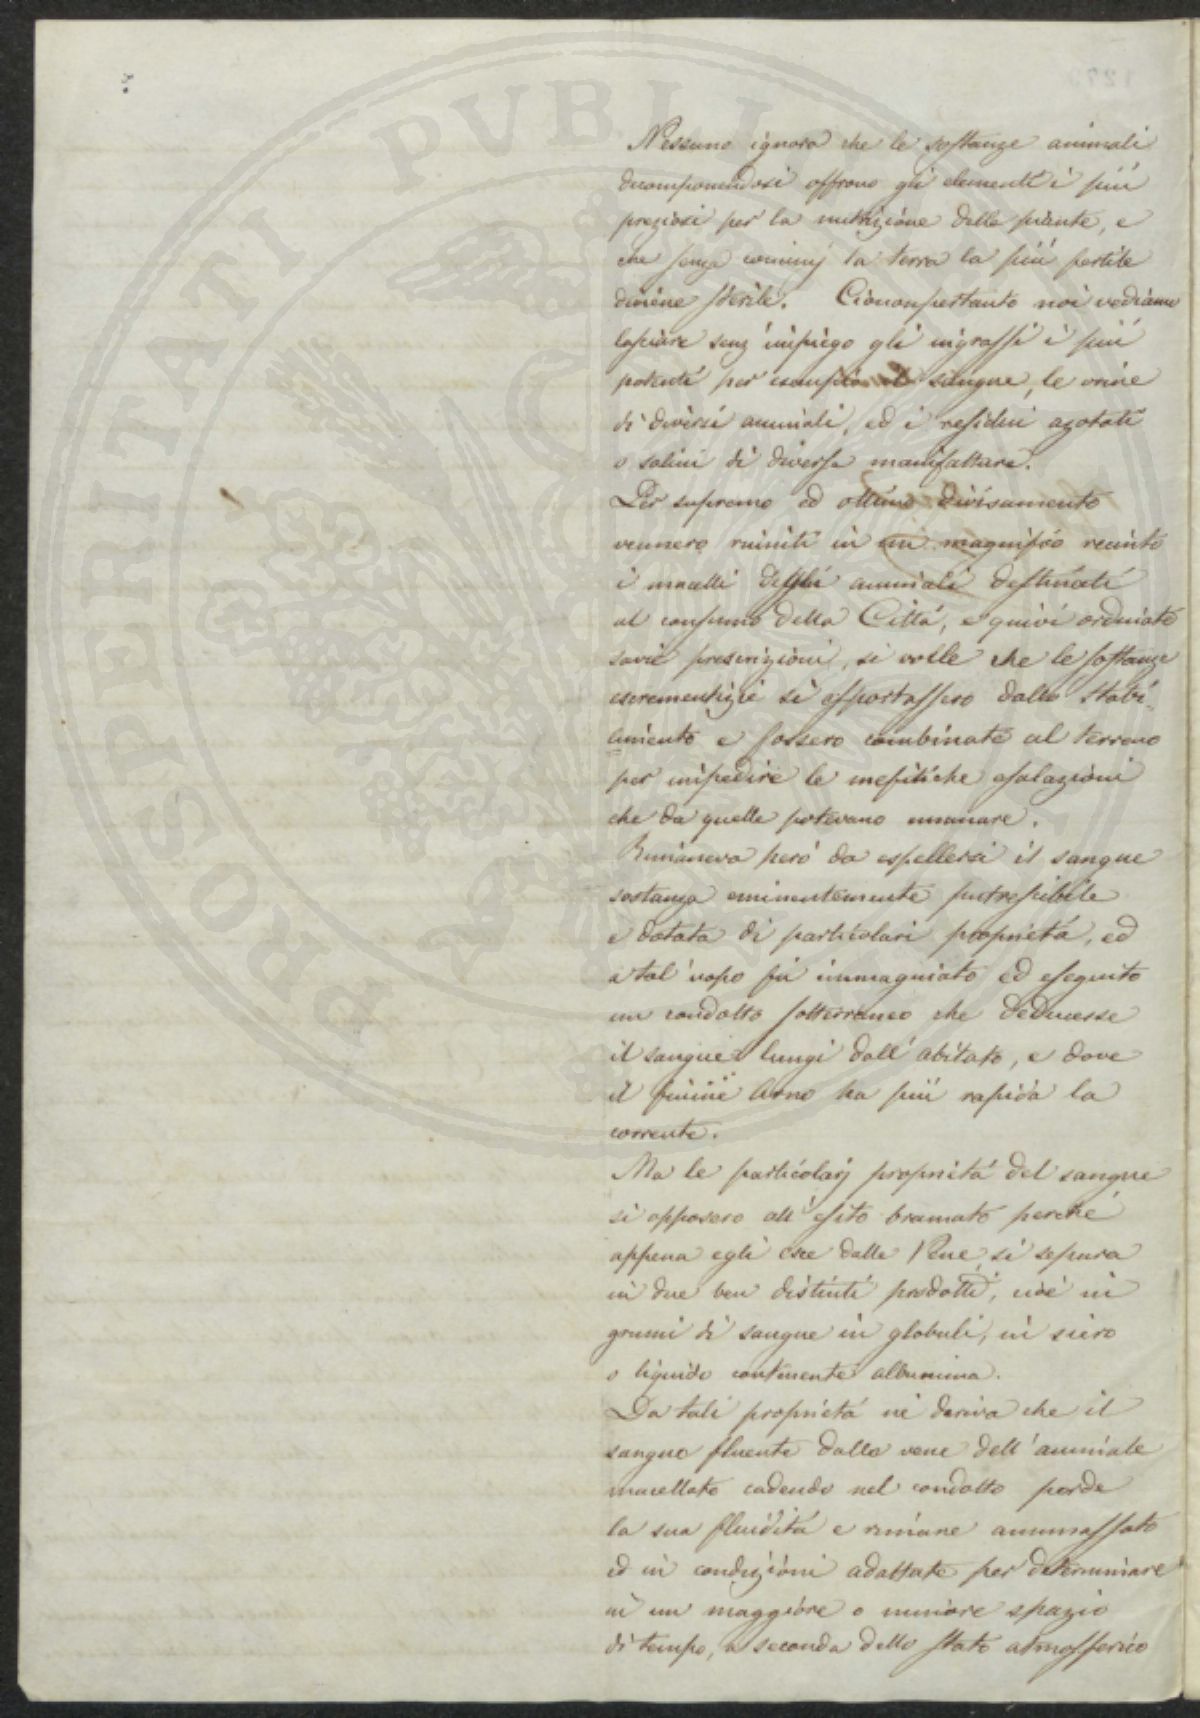 Nessuno ignora che le sostanze animali
decomponendosi offrono gli elementi i più
preziosi per la nutrizione delle piante, e
che senza concimj la terra la più fertile
diviene sterile. Ciononpertanto noi vediamo
lasciare senz'impiego gli ingrassi i più
potenti per esempio il sangue, le orine
di diversi animali, ed i residui azotati
o salini di diverse manifatture.
Per supremo ed ottimo divisamento
vennero riuniti in un magnifico recinto
i macelli degli animali destinati
al consumo della Città, e quivi ordinate
savie prescrizioni, si volle che le sostanze
escrementizie si asportassero dallo Stabi-
limento e fossero combinate al terreno
per impedire le mefitiche esalazioni
che da quelle potevano emanare.
Rimaneva però da espellersi il sangue
sostanza eminentemente putrescibile
e dotata di particolari proprietà, ed
a tal'uopo fù immaginato ed eseguito
un condotto sotterraneo che deducesse
il sangue lungi dall'abitato, e dove
il fiume Arno ha più rapida la
corrente.
Ma le particolarj proprietà del sangue
si opposero all'esito bramato perchè
appena egli esce dalle Vene, si separa
in due ben distinti prodotti, cioè in
grumi di sangue in globuli, in siero
o liquido contenente albumina.
Da tali proprietà ne deriva che il
sangue fluente dalle vene dell'animale
macellato cadendo nel condotto perde
la sua fluidità e rimane ammassato
ed in condizioni adattate per determinare
in un maggiore o minore spazio
di tempo, a seconda dello stato atmosferico
PROSPERITATI PUBLI